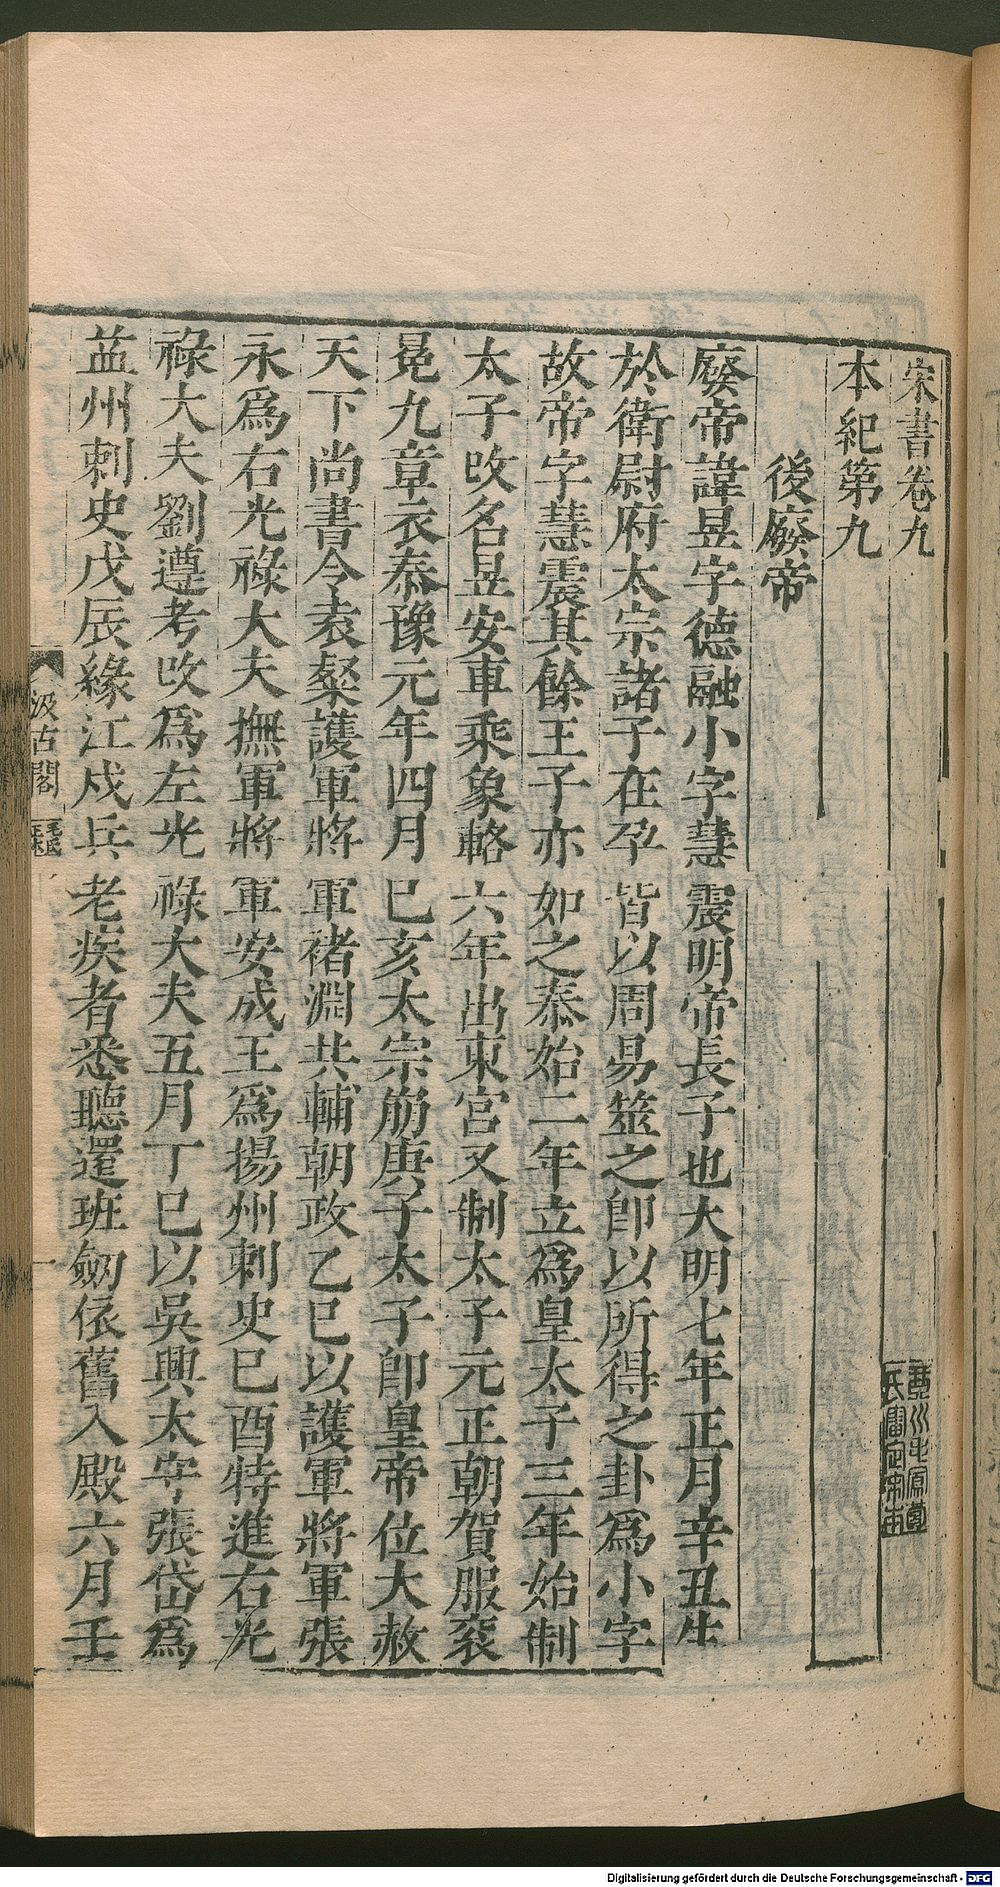 宋書卷九
本紀第九
後廢帝
廢帝諱昱字德融小字慧震明帝長子也大明七年正月辛丑生
於衛尉府太宗諸子在孕皆以周易筮之卽以所得之卦爲小字
故帝字慧震其餘王子亦如之泰始二年立爲皇太子三年始制
太子改名昱安車乘象輅六年出東宮又制太子元正朝賀服袞
冕九章衣泰豫元年四月巳亥太宗崩庚子太子卽皇帝位大赦
天下尚書令袁粲護軍將軍褚淵共輔朝政乙巳以護軍將軍張
永爲右光祿大夫撫軍將軍安成王爲揚州刺史巳酉特進右光
祿大夫劉遵考改爲左光祿大夫五月丁巳以吳興太守張岱爲
益州刺史戊辰緣江戍兵老疾者悉聽還班劒依舊入殿六月壬
汲古閣
毛氏
正本
Digitalisierung gefördert durch die Deutsche Forschungsgemeinschaft - DFG